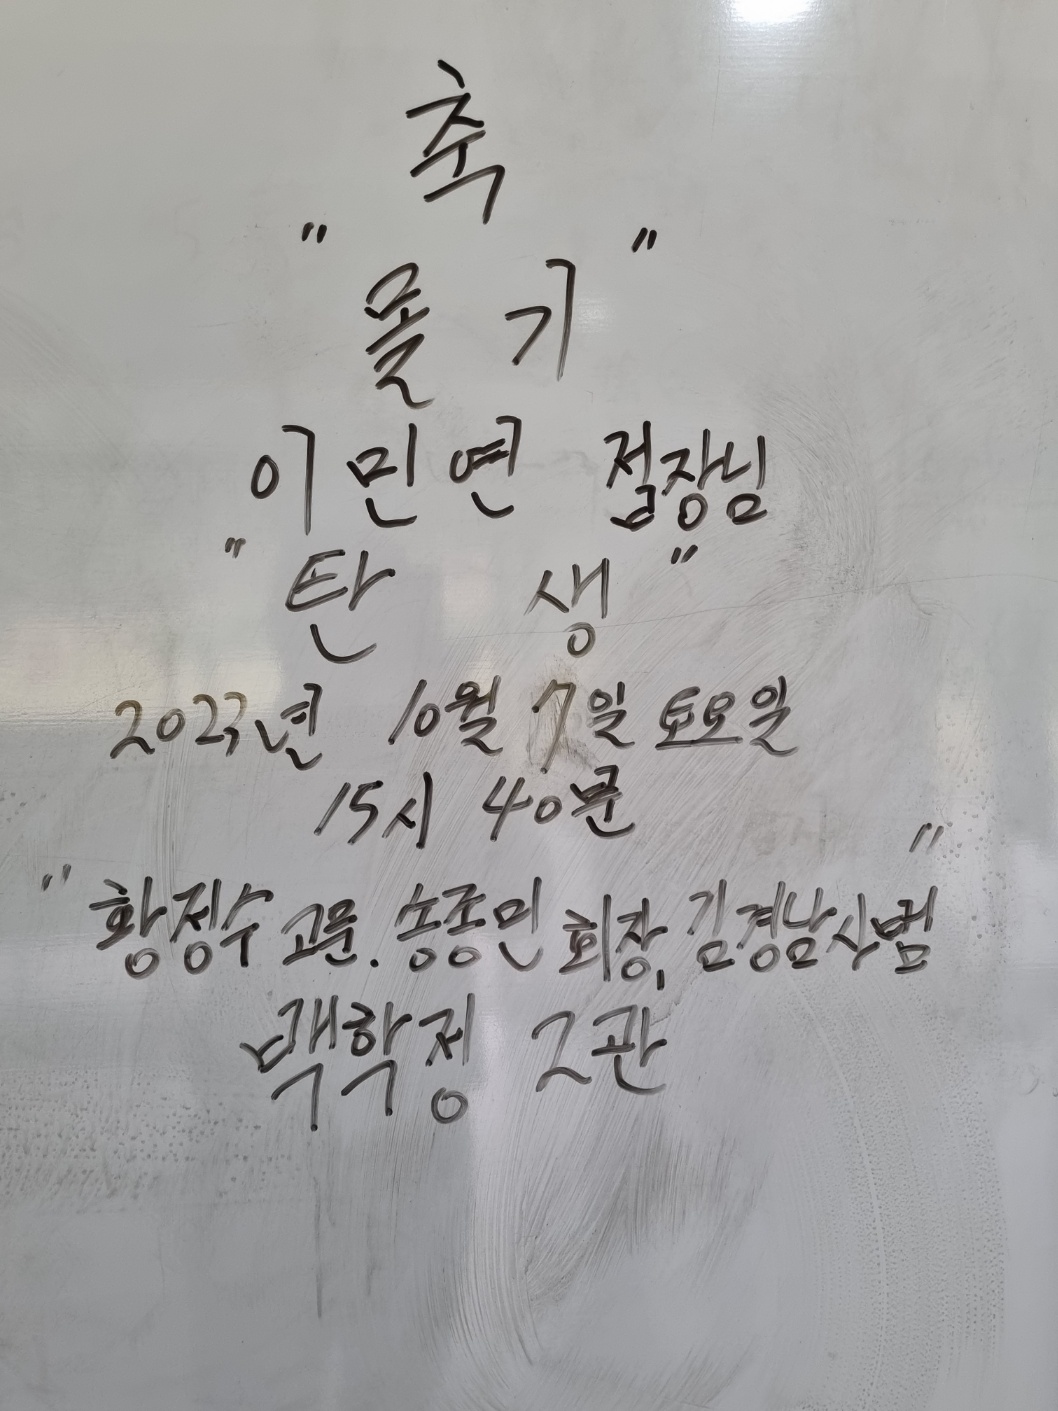 축
" 몰 기 "
이 민 연 접장님
" 탄 생 "
2023년 10월 7일 토요일
15시 40분
" 황정수 고문. 송종민 회장, 김경남사범 "
백학정 2관